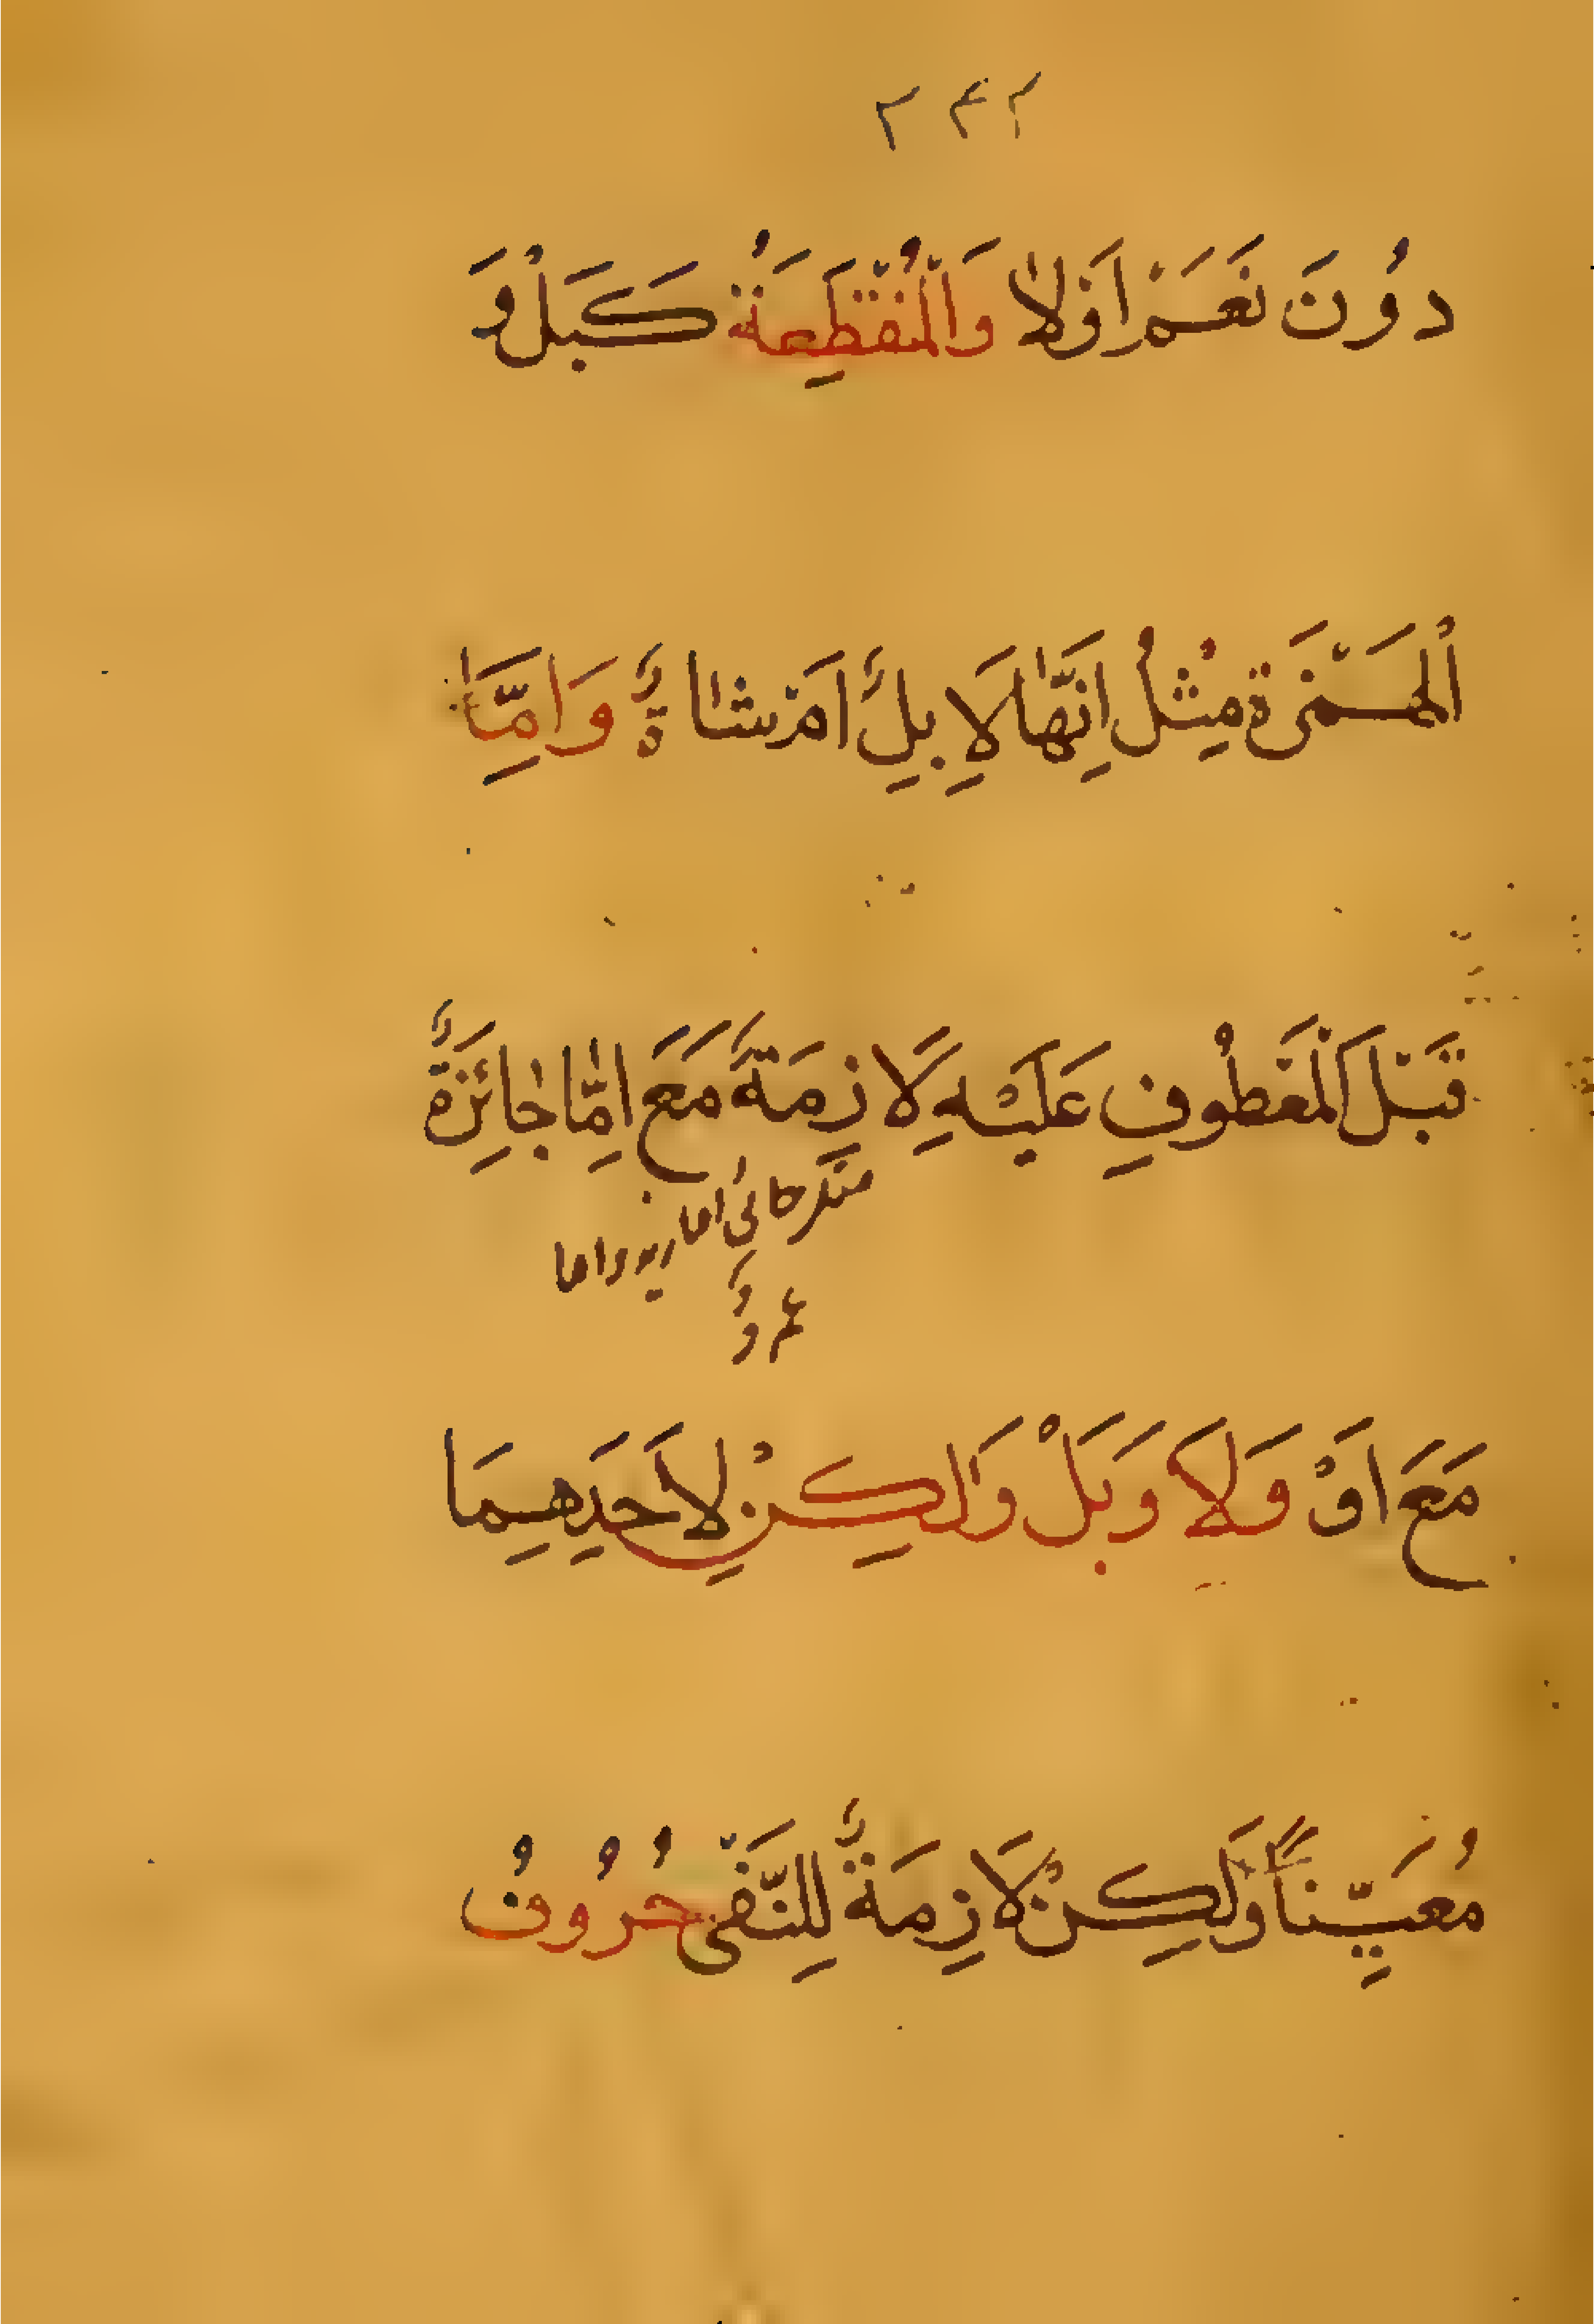 ٢٤٢
دُوْنَ نَعَمْ اَوْلَا وَالْمُنْقَطِعَةُ كَبَلْ وَ
الْهَمْزَةِ مِثْلُ اِنَّهَا لَاِبِلٌ اَمْ شَاةٌ وَاِمَّا
قَبْلَ الْمَعْطُوفِ عَلَيْهِ لَازِمَةٌ مَعَ اِمَّا جَائِزَةٌ
جائَنِي اما زيد واما
عمرٌو
مَعَ اَوْ وَلَا وَبَلْ وَلٰكِنْ لِاَحَدِهِمَا
مُعَيَّنًا وَلَكِنْ لَازِمَةٌ لِلنَّفْىِ حُرُوْفُ